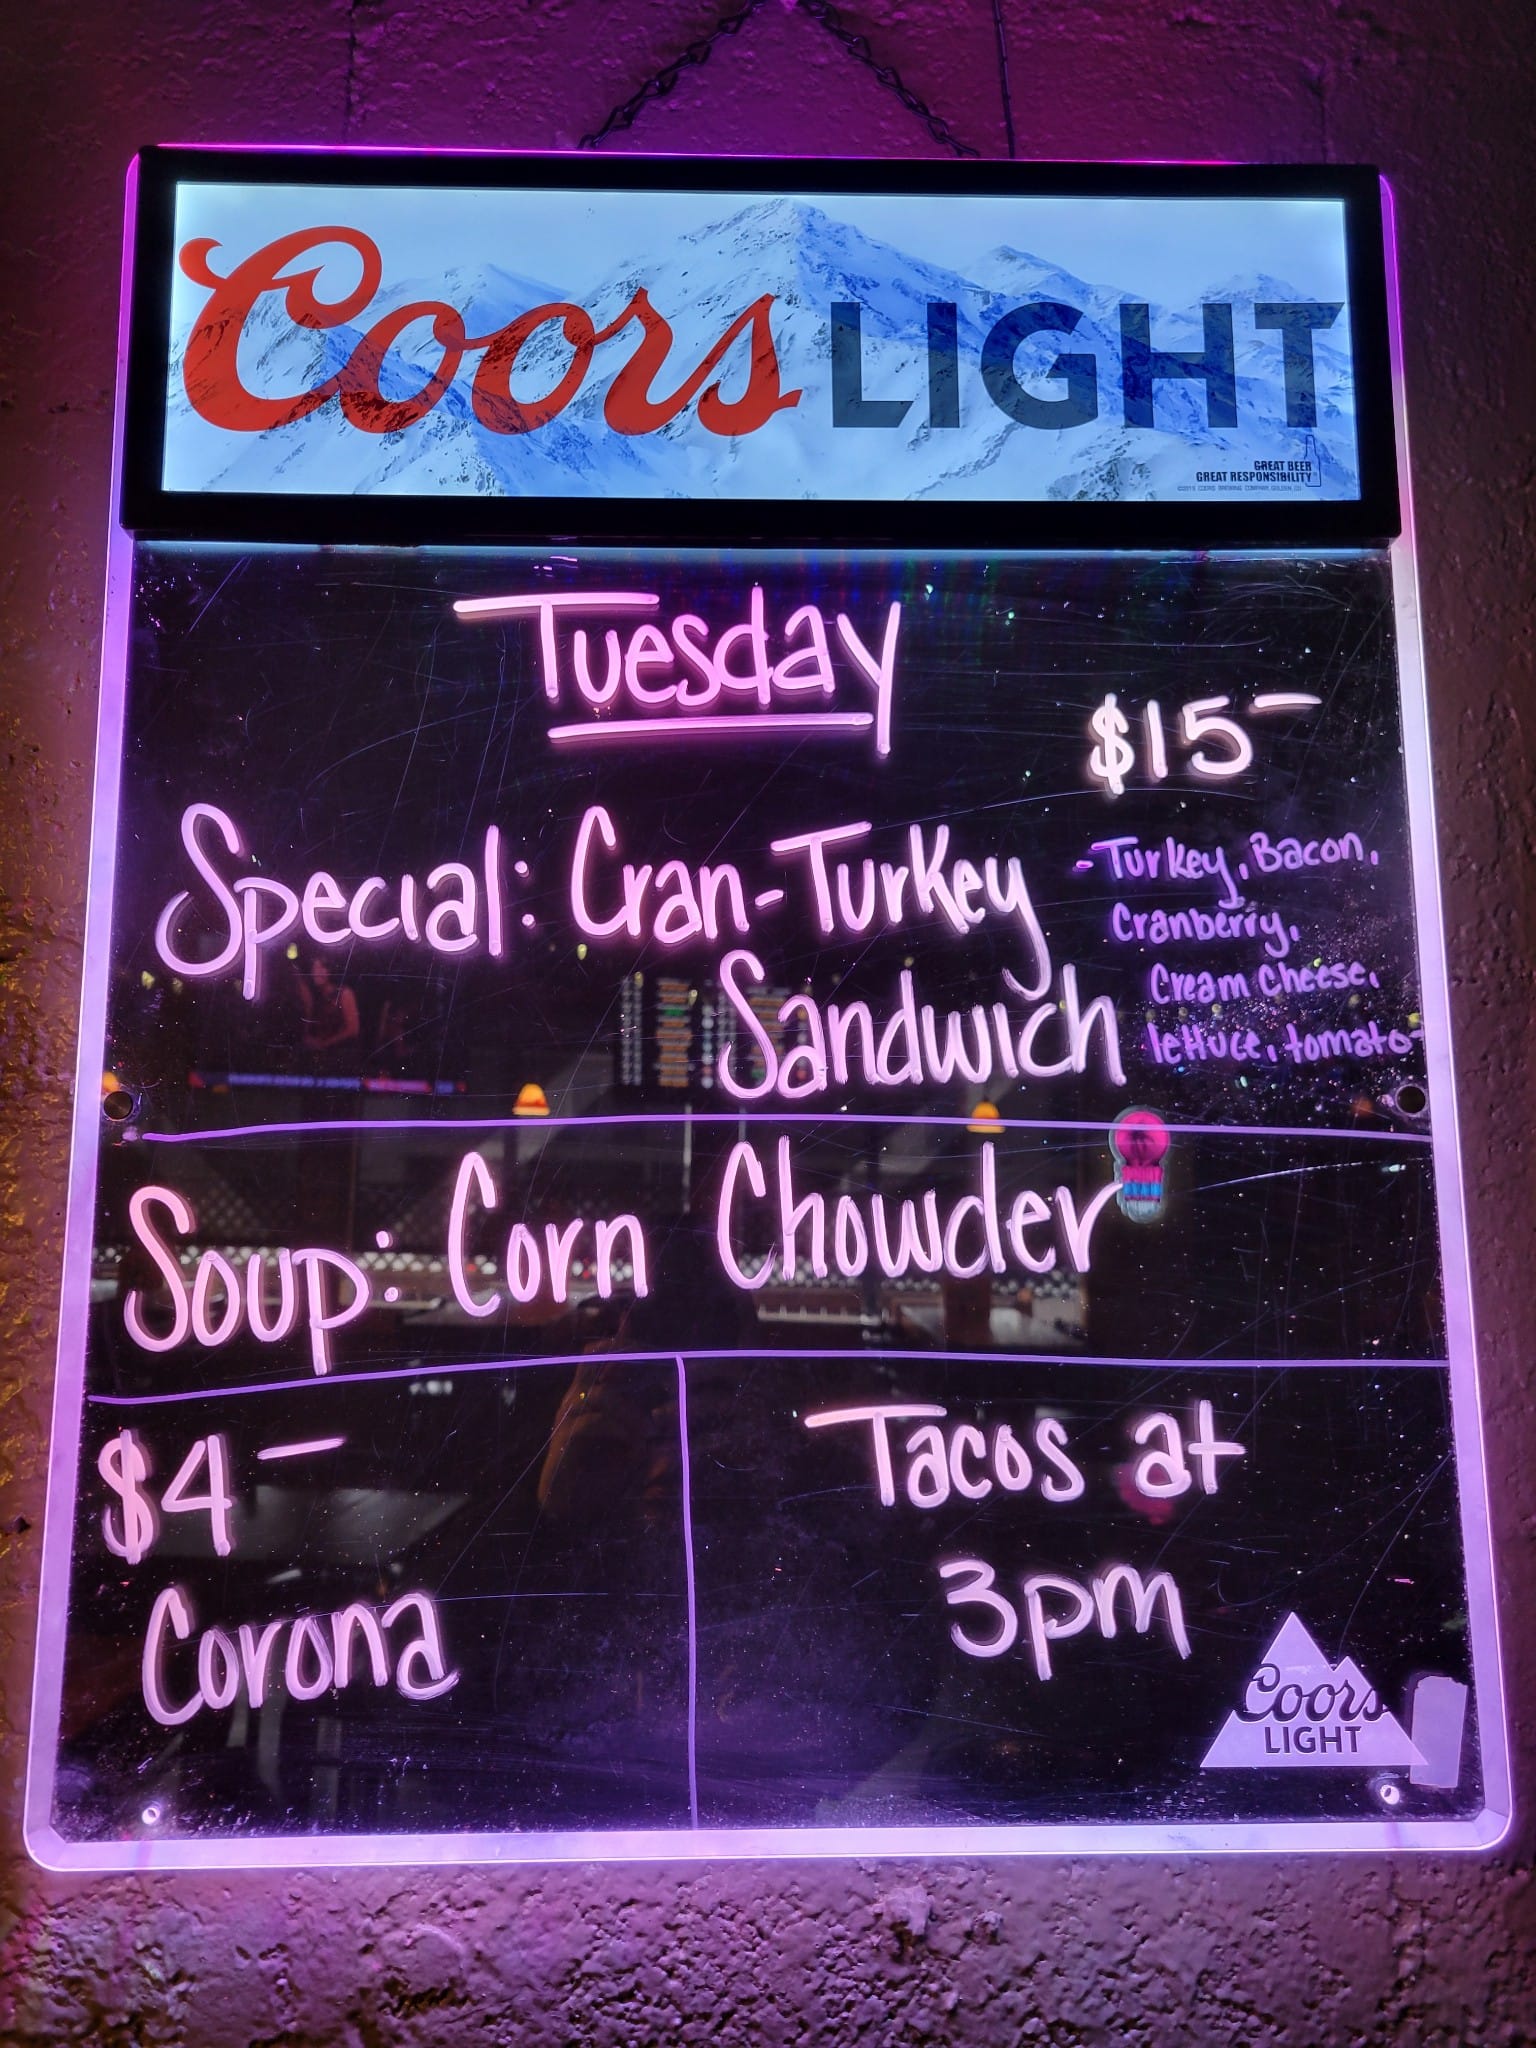 Coors LIGHT
GREAT BEER
GREAT RESPONSIBILITY
Tuesday
$15-
Special: Cran-Turkey
Sandwich
- Turkey, Bacon,
Cranberry,
Cream Cheese,
lettuce, tomato
Soup: Corn Chowder
$4-
Corona
Tacos at
3pm
Coors
LIGHT